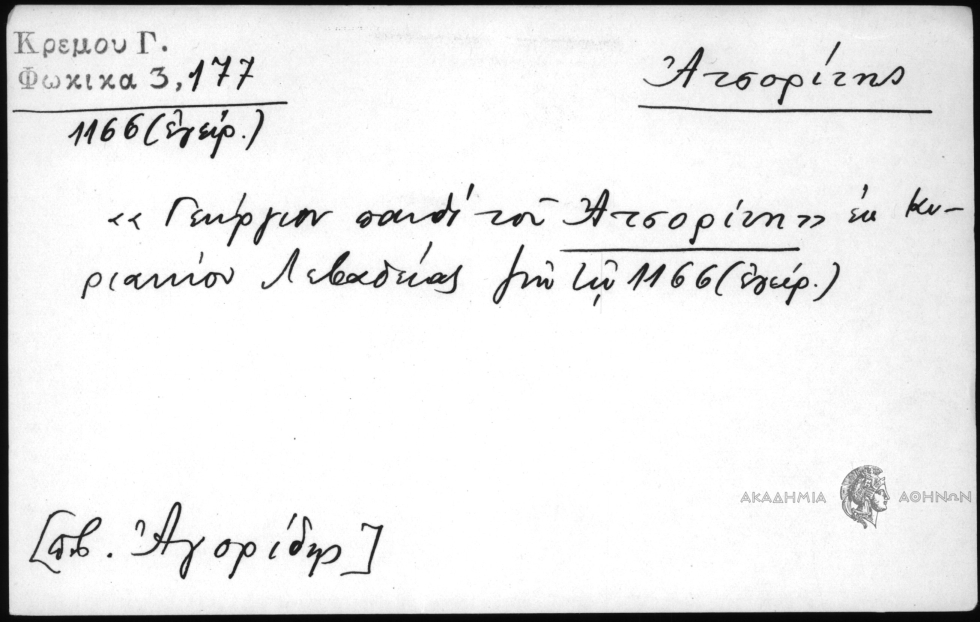 Κρεμου Γ.
Φωκικα 3, 177
1166 (ἐγείρ.)
Ἀτσορίτης
«Γεώργιον παιδὶ τοῦ Ἀτσορίτη» ἐκ Κυ-
ριακίου Λεβαδείας ἐν τῷ 1166 (ἐγείρ.)
ΑΚΑΔΗΜΙΑ ΑΘΗΝΩΝ
[πβ. Ἀγορίδης]